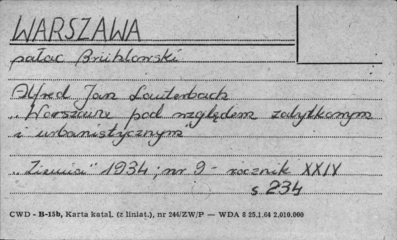 WARSZAWA
pałac Brühlowski
Alfred Jan Lauterbach
„Warszawa pod względem zabytkowym
i urbanistycznym
„Ziemia" 1934; nr 9 - rocznik XXIV
s 234
CWD - B-15b, Karta katal. (z liniat.), nr 244/ZW/P — WDA 8 25.1.64 2.010.000